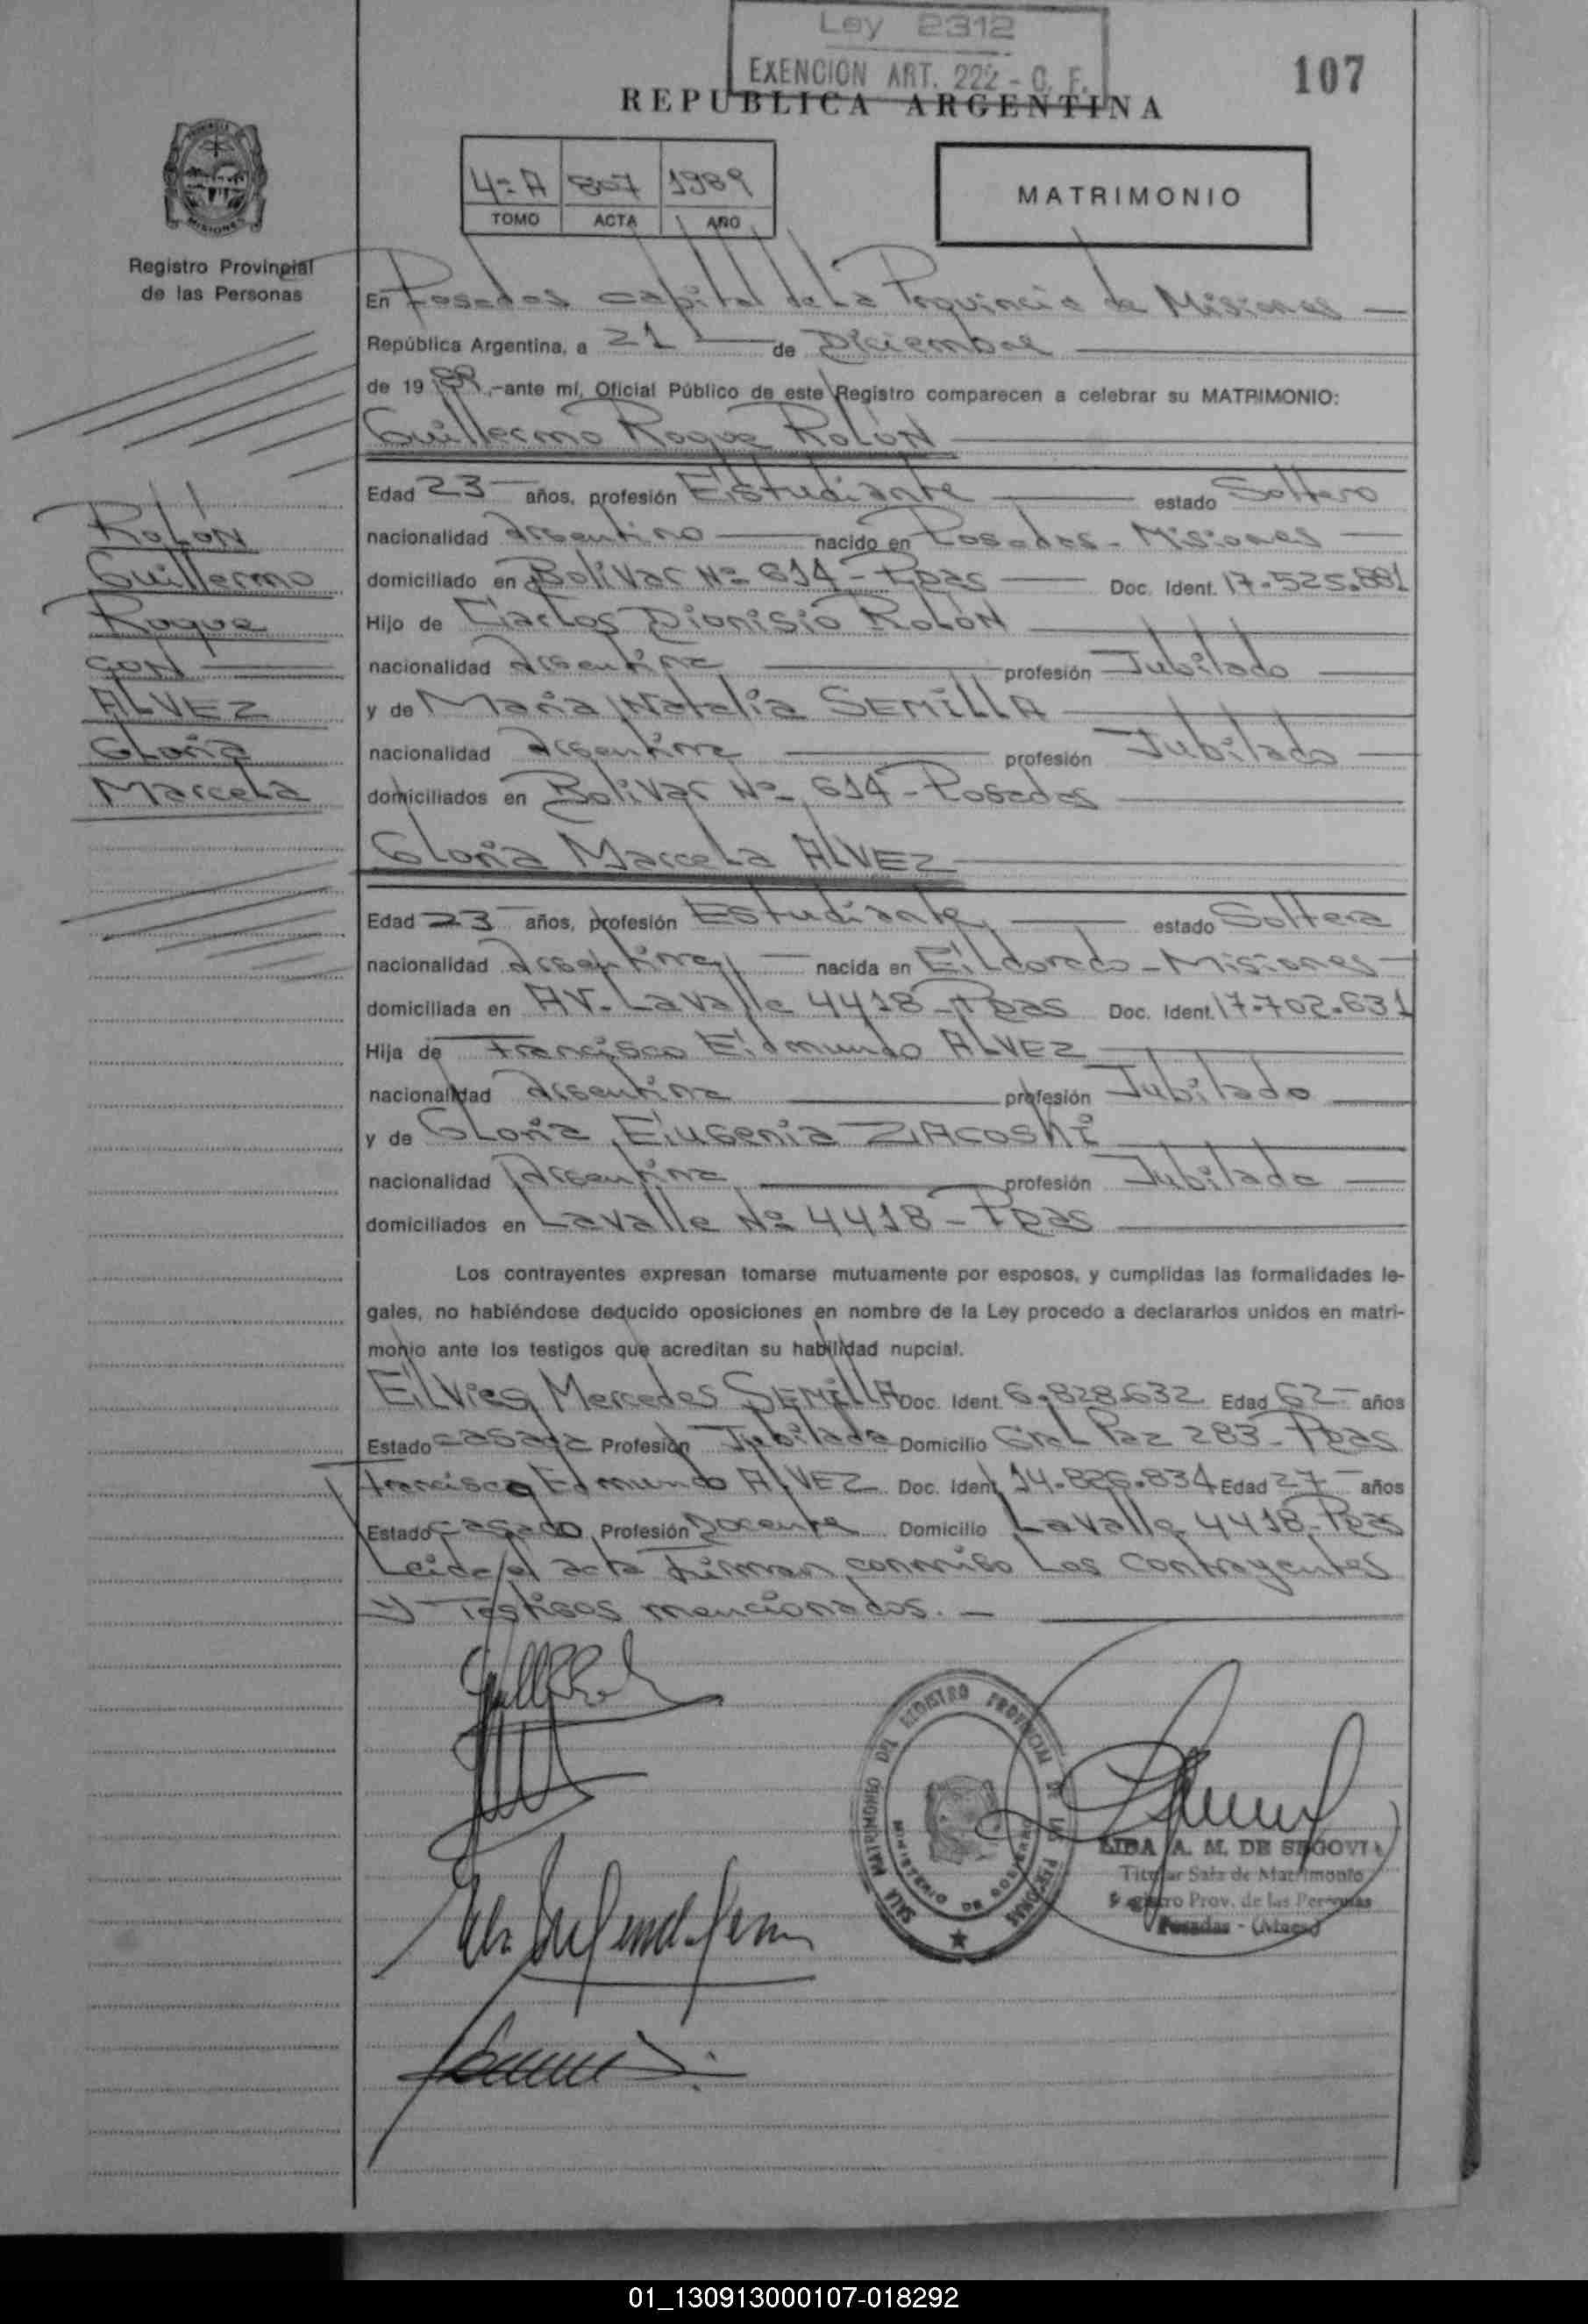 Ley 2312
EXENCION ART. 222 - C. F.
107
REPUBLICA ARGENTINA
4º A 807 1989
TOMO ACTA AÑO
MATRIMONIO
Registro Provincial
de las Personas
En Posadas capital de La Provincia de Misiones
República Argentina, a 21 de Diciembre
de 1989,-ante mí, Oficial Público de este Registro comparecen a celebrar su MATRIMONIO:
Guillermo Roque Rolón
Edad 23 años, profesión Estudiante estado Soltero
nacionalidad Argentino nacido en Posadas - Misiones
domiciliado en Bolivar Nº 614 - Pdas Doc. Ident. 17.525.881
Hijo de Carlos Dionisio Rolón
nacionalidad Argentina profesión Jubilado
y de Maria Natalia SEMILLA
nacionalidad Argentina profesión Jubilado
domiciliados en Bolivar Nº 614 - Posadas
Rolón
Guillermo
Roque
CON
ALVEZ
Gloria
Marcela
Gloria Marcela ALVEZ
Edad 23 años, profesión Estudiante estado Soltera
nacionalidad Argentina nacida en Eldorado - Misiones
domiciliada en AV. Lavalle 4418 - Pdas Doc. Ident. 17.702.631
Hija de Francisco Edmundo ALVEZ
nacionalidad Argentina profesión Jubilado
y de Gloria Eugenia
nacionalidad Argentina profesión Jubilada
domiciliados en Lavalle Nº 4418 - Pdas
Los contrayentes expresan tomarse mutuamente por esposos, y cumplidas las formalidades le-
gales, no habiéndose deducido oposiciones en nombre de la Ley procedo a declararlos unidos en matri-
monio ante los testigos que acreditan su habilidad nupcial.
Mercedes SEMILLA Doc. Ident. 6.828.632 Edad 62 años
Estado casada Profesión Jubilada Domicilio Gral Paz 283 - Pdas
Francisco Edmundo ALVEZ Doc. Ident. 14.886.834 Edad 27 años
Estado casado Profesión Docente Domicilio Lavalle 4418 - Pdas
Leida el acta Firman conmigo Los Contrayentes
y Testigos mencionados. -
SALA MATRIMONIO DEL REGISTRO PROVINCIAL DE LAS PERSONAS
MINISTERIO DE GOBIERNO
LIDA A. M. DE SEGOVIA
Titular Sala de Matrimonio
Registro Prov. de las Personas
Posadas - (Mnes.)
01_130913000107-018292